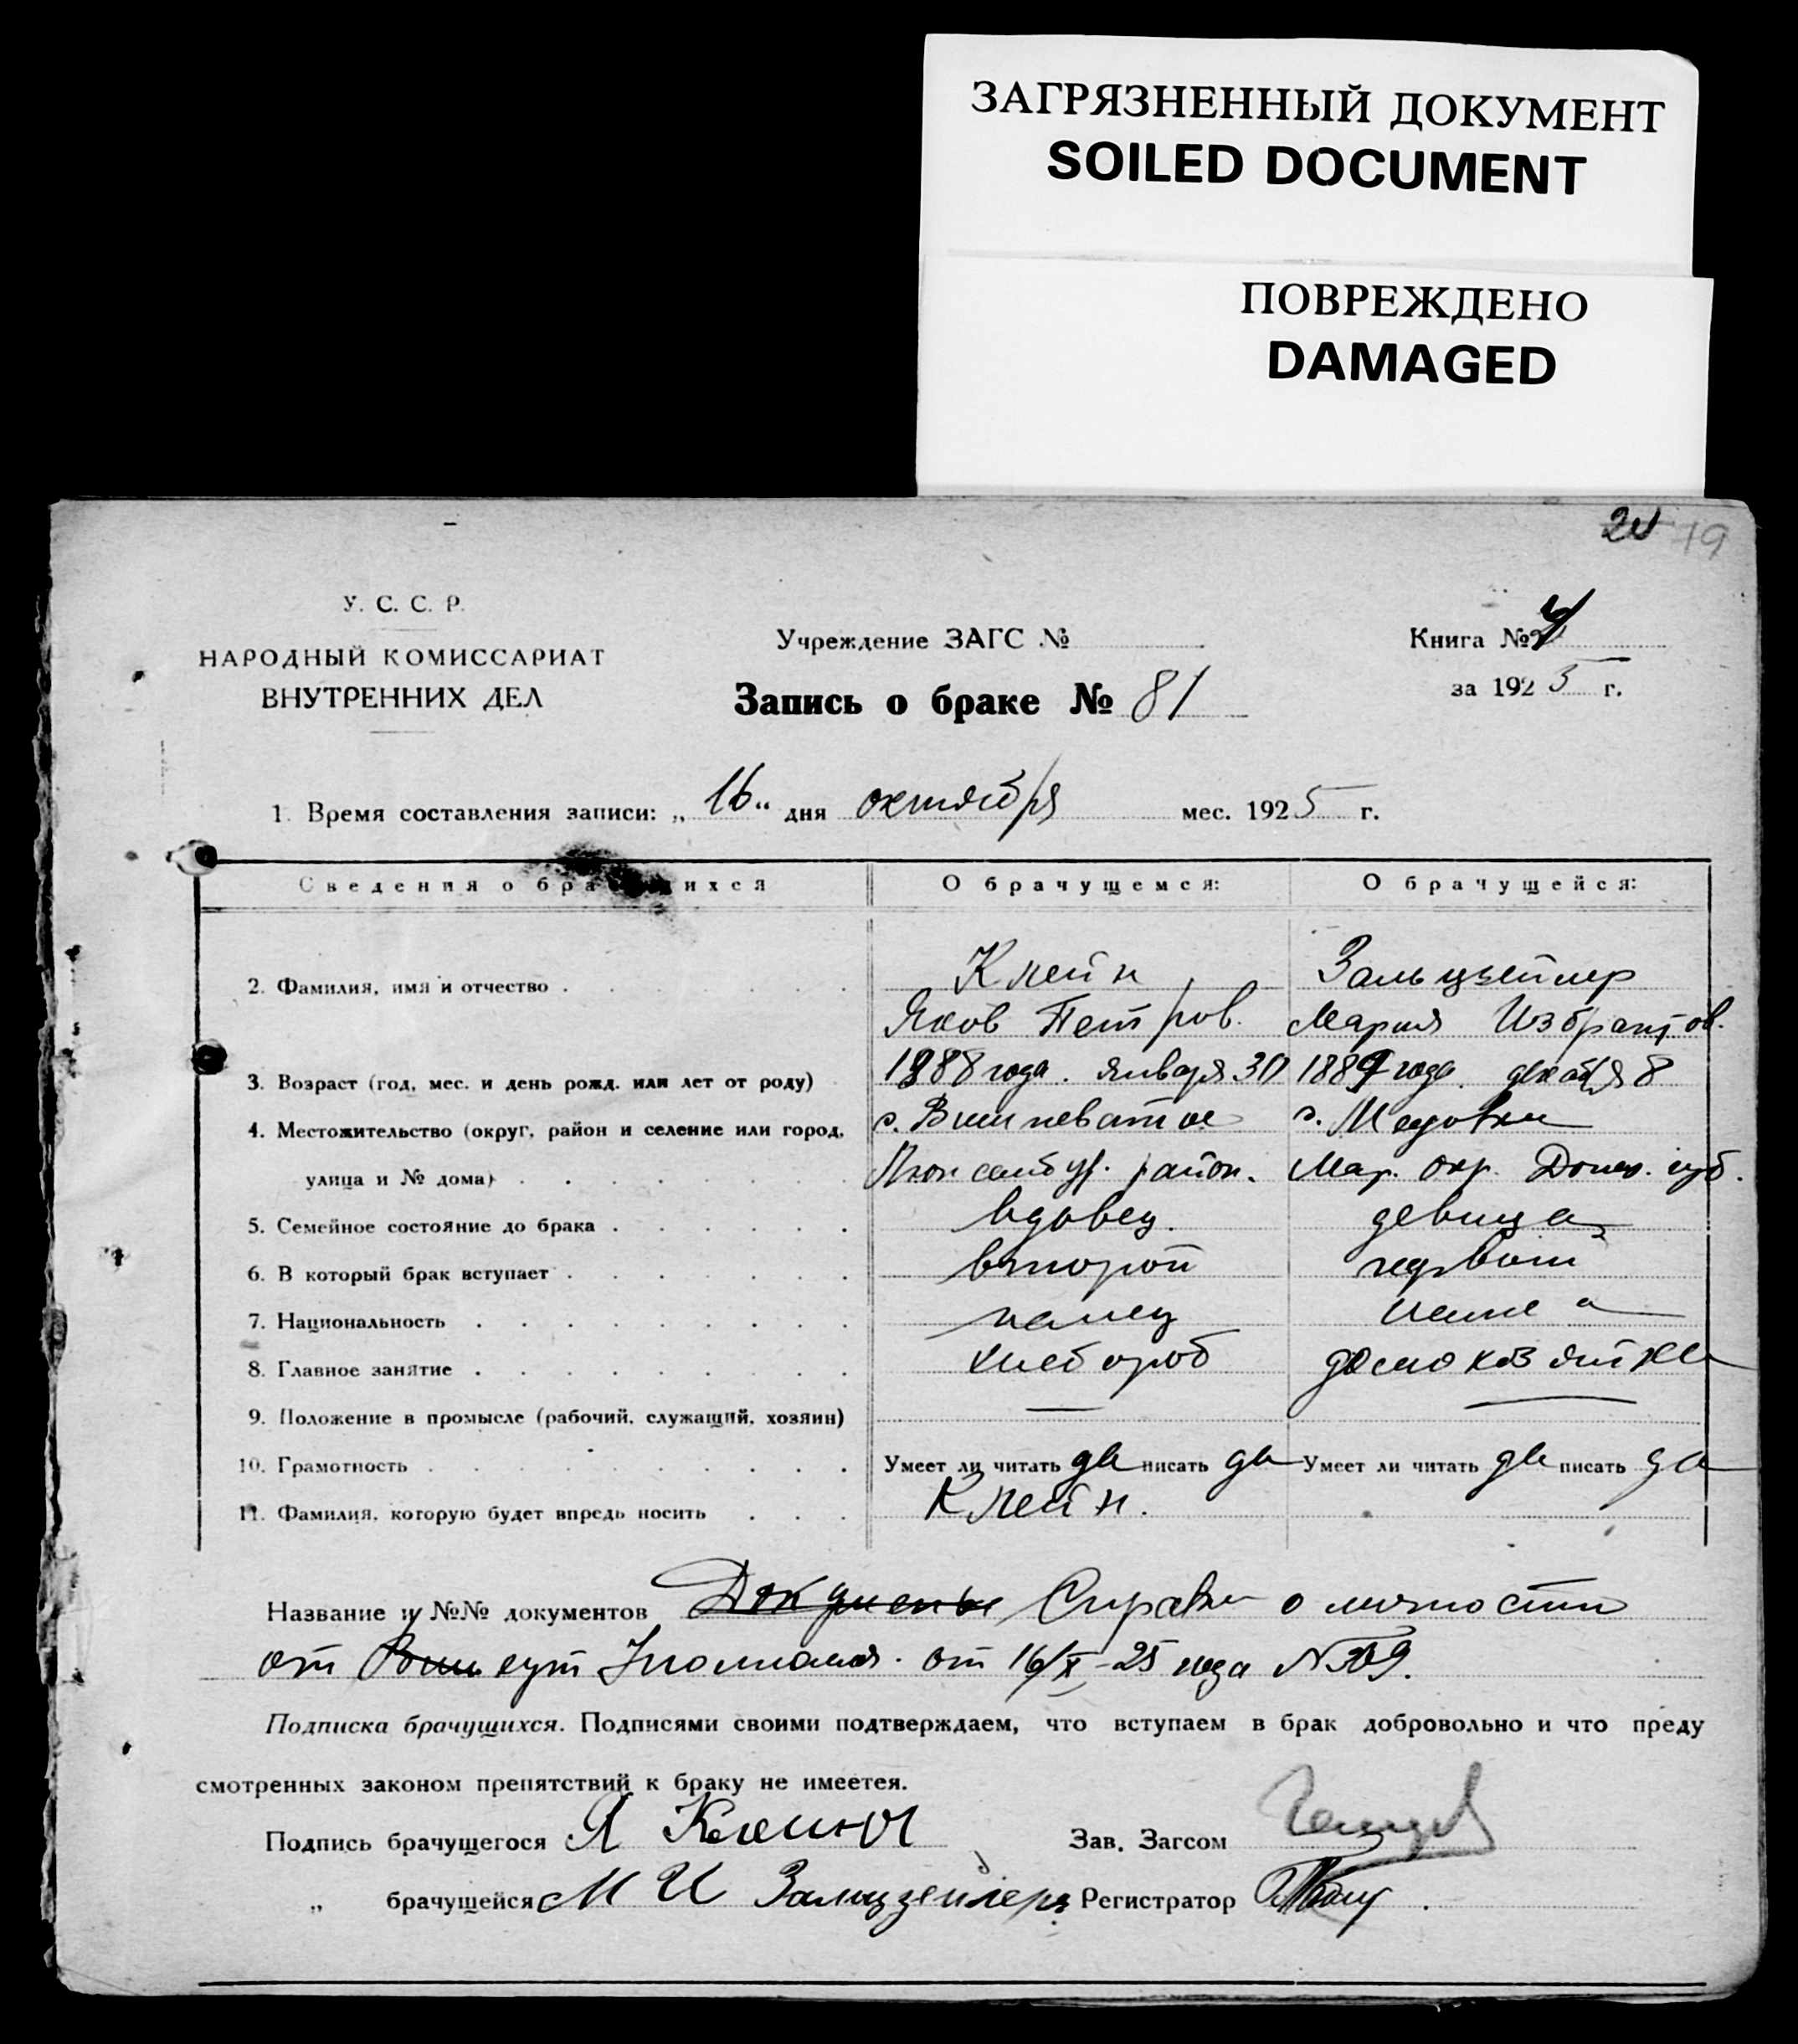 ЗАГРЯЗНЕННЫЙ ДОКУМЕНТ
SOILED DOCUMENT
ПОВРЕЖДЕНО
DAMAGED
19
У. С. С. Р.
НАРОДНЫЙ КОМИССАРИАТ
ВНУТРЕННИХ ДЕЛ
Учреждение ЗАГС №
Запись о браке № 81
Книга №
за 1925 г.
1. Время составления записи: „16“ дня октября мес. 1925 г.
Сведения о бра ихся
О брачущемся:
О брачущейся:
2. Фамилия, имя и отчество
Клейн
Зальцзейлер
Яков Петров.
Мария
3. Возраст (год, мес. и день рожд. или лет от роду)
1888 года. января 30
188 года. декабря 8
4. Местожительство (округ, район и селение или город,
с. Вишневатое
с.
улица и № дома)
Люксембур. район.
Мар. окр. Донец. губ.
5. Семейное состояние до брака
вдовец.
девица
6. В который брак вступает
второй
первый
7. Национальность
немец
немка
8. Главное занятие
хлебороб
домохозяйка
9. Положение в промысле (рабочий, служащий, хозяин)
—
—
10. Грамотность
Умеет ли читать да писать да
Умеет ли читать да писать да
11. Фамилия, которую будет впредь носить
Клейн.
Название и №№ документов Документы Справки о личности
от от 16/X-25 года N 309.
Подписка брачущихся. Подписями своими подтверждаем, что вступаем в брак добровольно и что преду
смотренных законом препятствий к браку не имеетея.
Подпись брачущегося Я Клейн
Зав. Загсом
„ брачущейся М И Залцзейлер
Регистратор